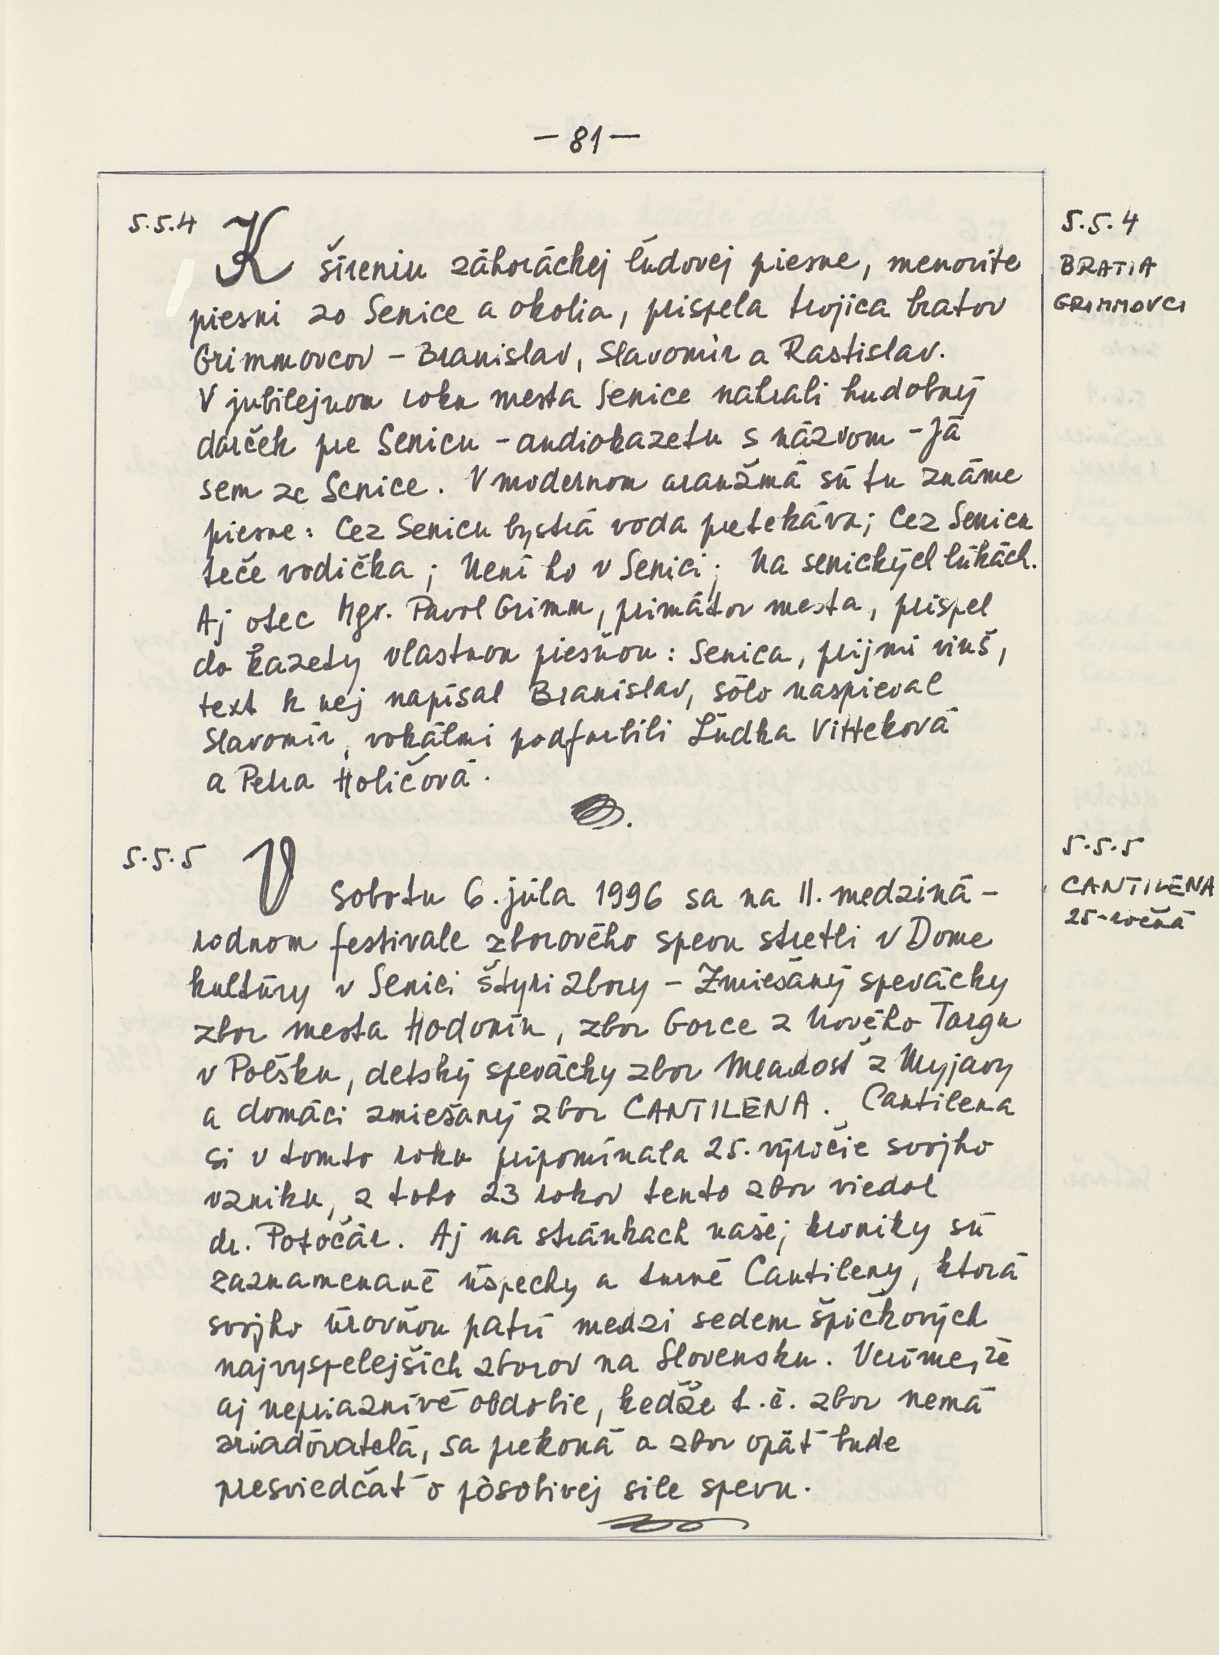 — 81 —
5.5.4
K šíreniu záhoráckej ľudovej piesne, menovite
piesní zo Senice a okolia, prispela trojica bratov
Grimmovcov – Branislav, Slavomír a Rastislav.
V jubilejnom roku mesta Senice nahrali hudobný
darček pre Senicu – audiokazetu s názvom – Já
sem ze Senice. V modernom aranžmá sú tu známe
piesne: Cez Senicu bystrá voda pretekáva; Cez Senicu
teče vodička; Není ho v Senici; Na senických lúkách.
Aj otec Mgr. Pavol Grimm, primátor mesta, prispel
do kazety vlastnou piesňou: Senica, prijmi vinš,
text k nej napísal Branislav, sólo naspieval
Slavomír, vokálmi podfarbili Ľudka Vitteková
a Petra Holičová.
5.5.4
BRATIA
GRIMMOVCI
5.5.5
V sobotu 6. júla 1996 sa na II. mediná-
rodnom festivale zborového spevu stretli v Dome
kultúry v Senici štyri zbory – Zmiešaný spevácky
zbor mesta Hodonín, zbor Gorce z Nového Targu
v Poľsku, detský spevácky zbor Mladosť z Myjavy
a domáci zmiešaný zbor CANTILENA. Cantilena
si v tomto roku pripomínala 25. výročie svojho
vzniku, z toho 23 rokov tento zbor viedol
dr. Potočár. Aj na stránkach našej kroniky sú
zaznamenané úspechy a turné Cantileny, ktorá
svojho úrovňou patrí medzi sedem špičkových
najvyspelejších zborov na Slovensku. Veríme, že
aj nepriaznivé obdobie, kedže t.č. zbor nemá
zriaďovateľa, sa prekoná a zbor opäť bude
presviedčať o pôsobivej sile spevu.
5.5.5
CANTILENA
25-ročná